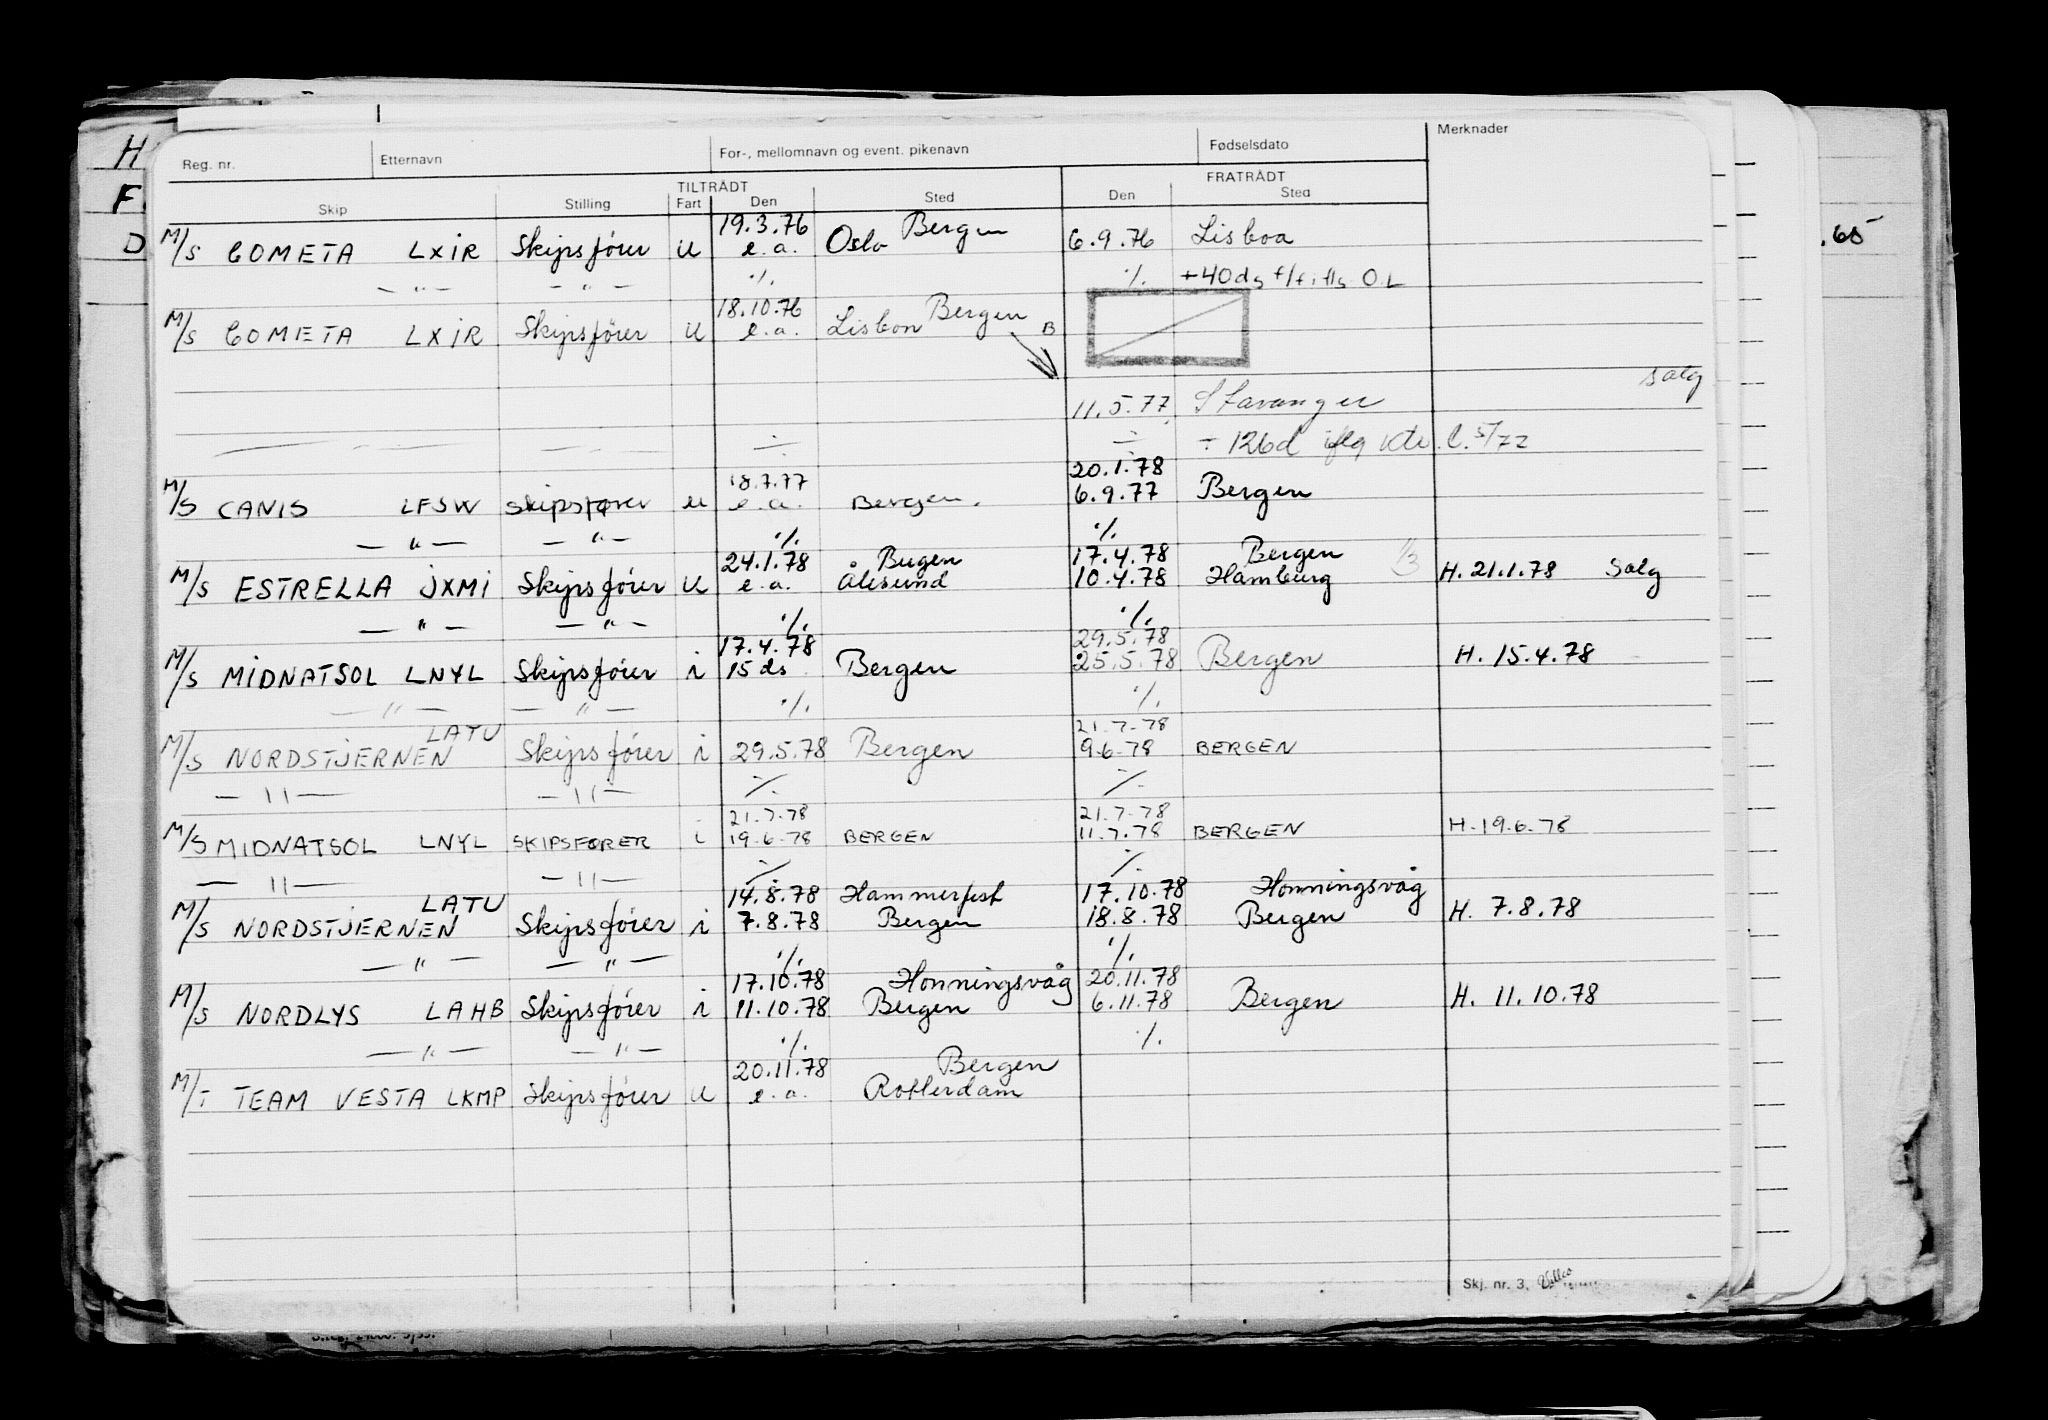 Reg. nr. Etternavn For-, mellomnavn og event. pikenavn Fødselsdato Merknader
TILTRÅDT FRATRÅDT
Skip Stilling Fart Den Sted Den Sted
19.3.76 Bergen
M/S COMETA LXIR Skipsfører u e.a. Oslo 6.9.76 Lisboa
— " — — " — ./. ./. +40ds
18.10.76 Bergen
M/S COMETA LXIR Skipsfører u e.a. Lisbon B
salg
11.5.77 Stavanger
÷ 126d iflg
18.7.77 20.1.78
M/S CANIS LFSW skipsfører u e.a. Bergen. 6.9.77 Bergen
— " — — " — ./. ./.
24.1.78 Bergen 17.4.78 Bergen 1/3
M/S ESTRELLA JXMI Skipsfører u e.a. Ålesund 10.4.78 Hamburg H. 21.1.78 Salg
— " — — " — ./. ./.
17.4.78 29.5.78
M/S MIDNATSOL LNYL Skipsfører i 15 ds Bergen 25.5.78 Bergen H. 15.4.78
— " — — " — ./. ./.
LATU 21.7.78
M/S NORDSTJERNEN Skipsfører i 29.5.78 Bergen 9.6.78 BERGEN
— " — — " — ./. ./.
21.7.78 21.7.78
M/S MIDNATSOL LNYL SKIPSFØRER i 19.6.78 BERGEN 11.7.78 BERGEN H. 19.6.78
— " — — " — ./. ./.
LATU 14.8.78 Hammerfest 17.10.78 Honningsvåg
M/S NORDSTJERNEN Skipsfører i 7.8.78 Bergen 18.8.78 Bergen H. 7.8.78
— " — — " — ./. ./.
17.10.78 Honningsvåg 20.11.78
M/S NORDLYS LAHB Skipsfører i 11.10.78 Bergen 6.11.78 Bergen H. 11.10.78
— " — — " — ./. ./.
20.11.78 Bergen
M/T TEAM VESTA LKMP Skipsfører u e.a. Rotterdam
Skj. nr. 3.
H
F
D
.65